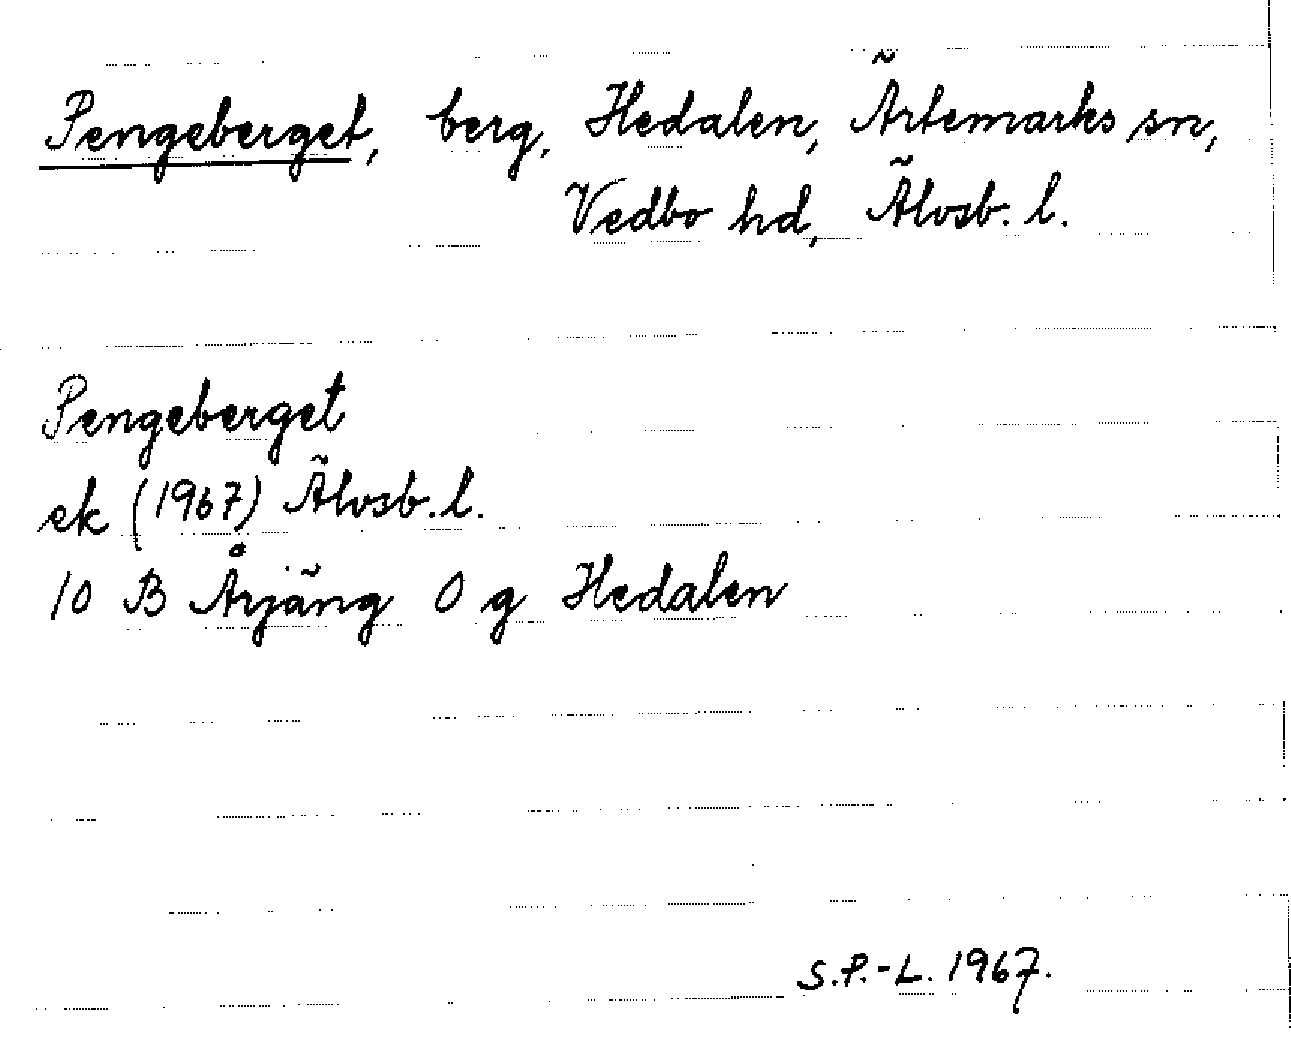 Pengeberget, berg, Hedalen, Ärtemarks sn,
Vedbo hd, Älvsb. l.
Pengeberget
ek (1967) Älvsb. l.
10 B Årjäng 0 g Hedalen
S.P.-L. 1967.